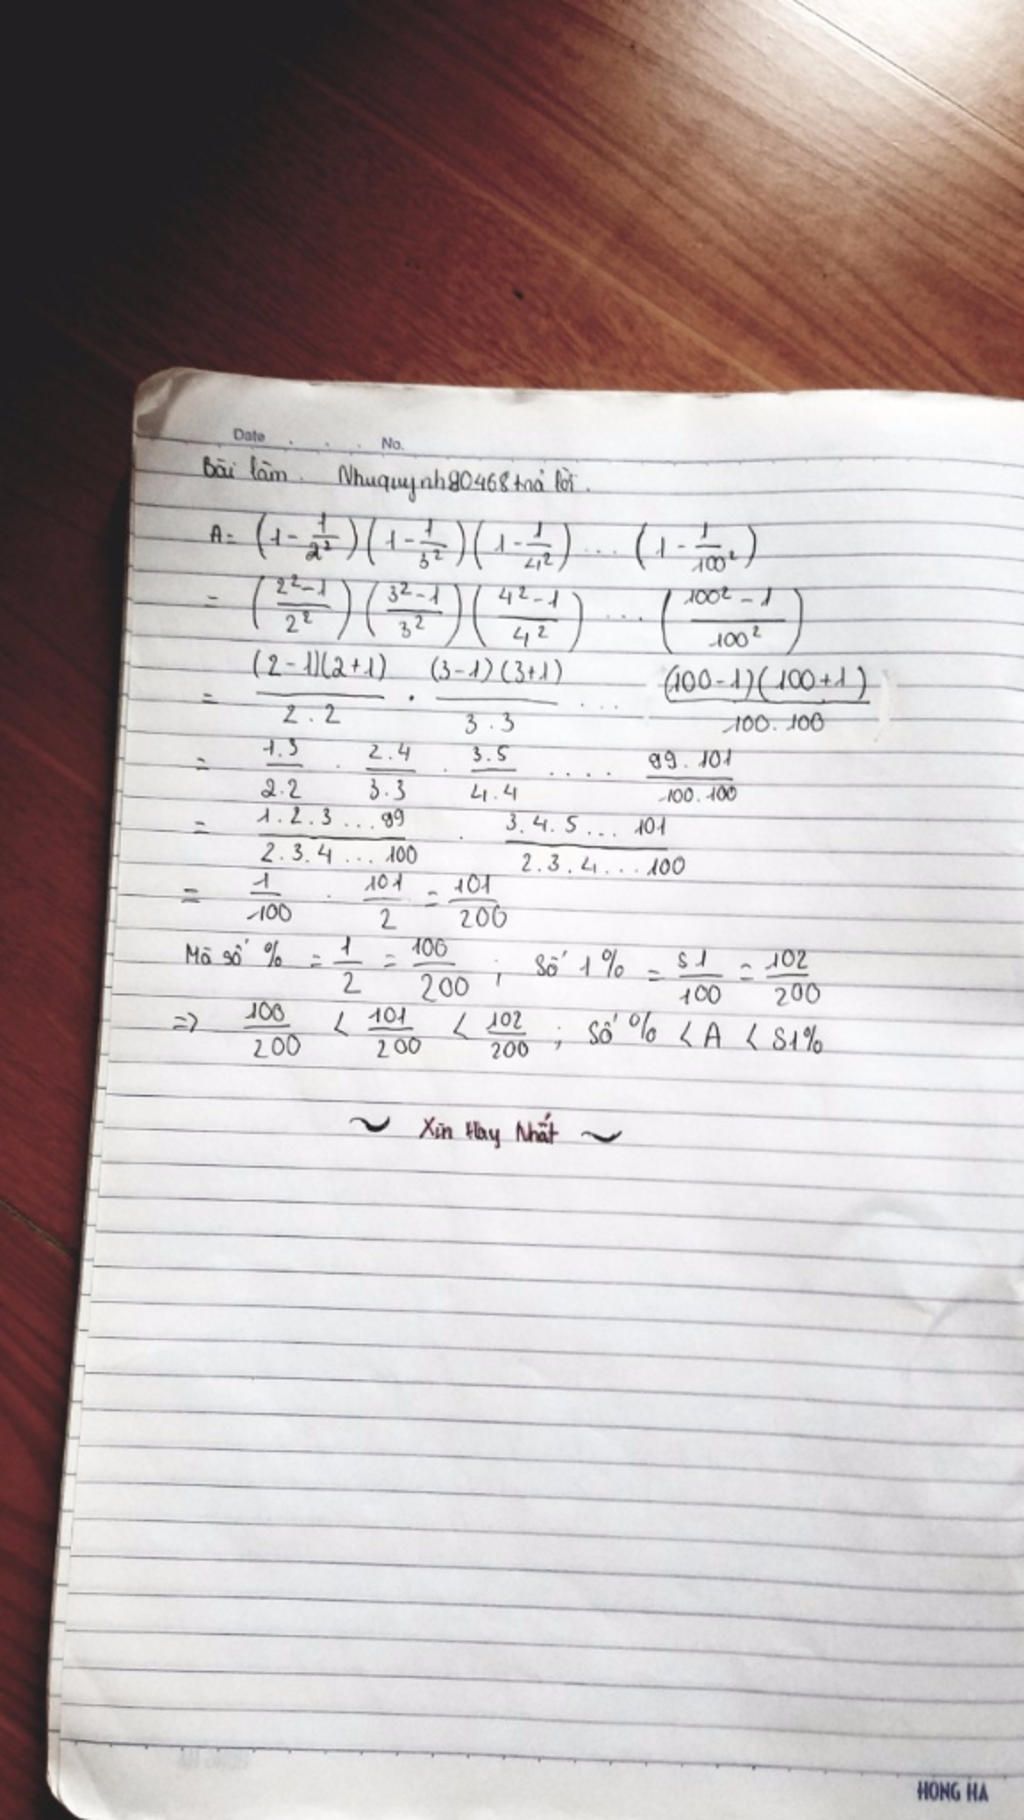 Date . . . No.
Bài làm. Nhuquynh80468 trả lời.
A = (1 - 1/2²)(1 - 1/3²)(1 - 1/4²) ... (1 - 1/100²)
= (2²-1/2²)(3²-1/3²)(4²-1/4²) ... (100²-1/100²)
= (2-1)(2+1)/2.2 . (3-1)(3+1)/3.3 ... (100-1)(100+1)/100.100
= 1.3/2.2 . 2.4/3.3 . 3.5/4.4 .... 99.101/100.100
= 1.2.3...99/2.3.4...100 . 3.4.5...101/2.3.4...100
= 1/100 . 101/2 = 101/200
Mà số % = 1/2 = 100/200 ; Số 1% = 51/100 = 102/200
=> 100/200 < 101/200 < 102/200 ; số % < A < 51%
~ Xin Hay Nhất ~
HONG HA